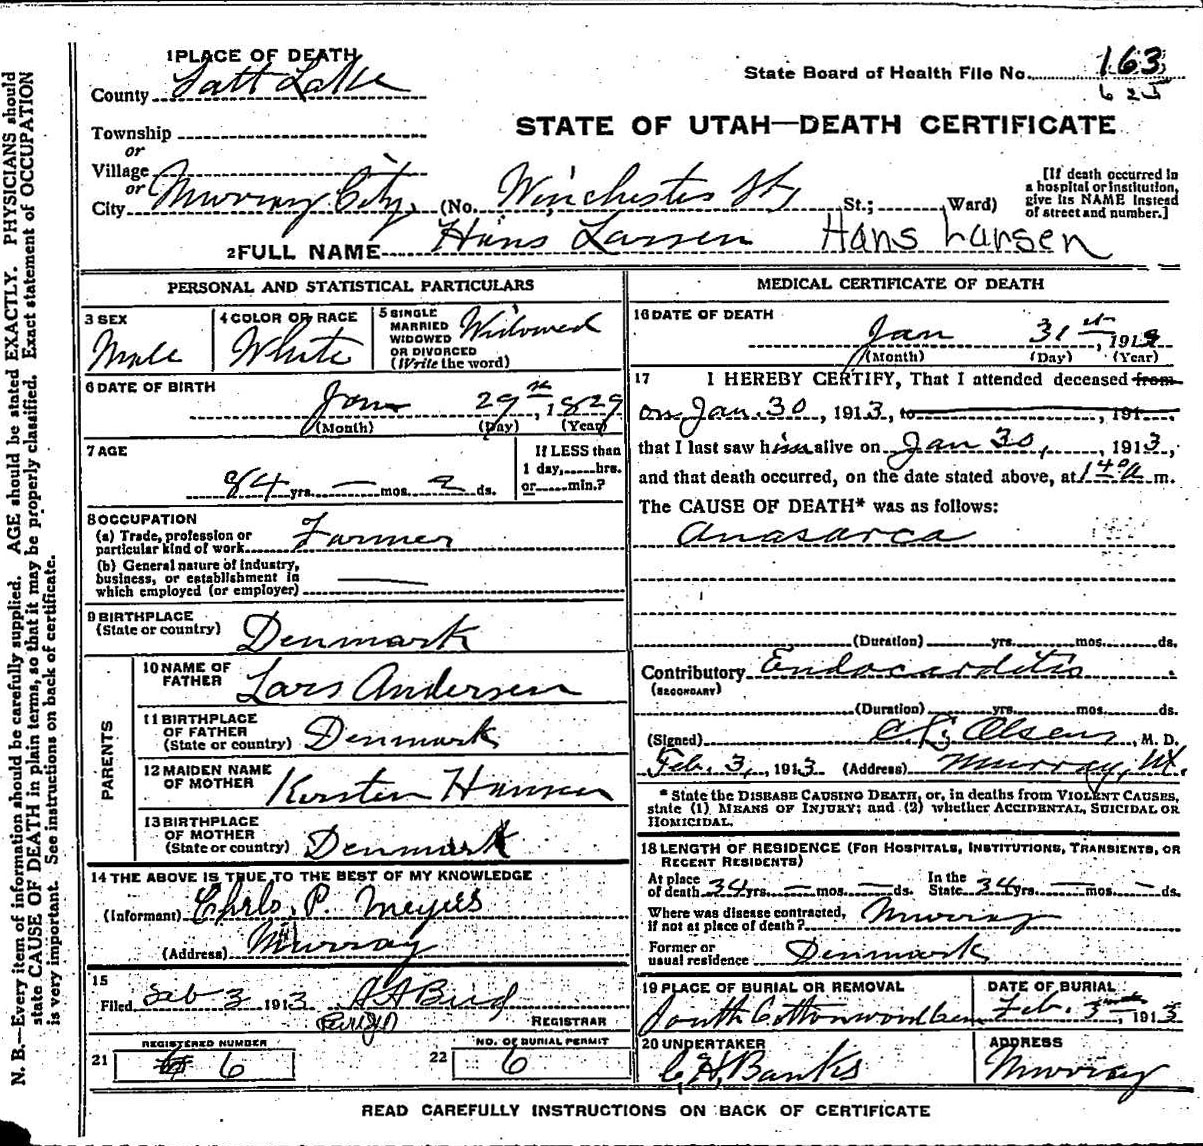 1 PLACE OF DEATH
County Salt Lake
State Board of Health File No. 163
625
Township
or
Village
or
City Murray City, (No. Winchester St; St.; Ward)
STATE OF UTAH—DEATH CERTIFICATE
[If death occurred in
a hospital or institution,
give its NAME instead
of street and number.]
2 FULL NAME Hans Larsen Hans Larsen
PERSONAL AND STATISTICAL PARTICULARS
3 SEX
Male
4 COLOR OR RACE
White
5 SINGLE
MARRIED
WIDOWED
OR DIVORCED
(Write the word)
Widowed
6 DATE OF BIRTH
Jan 29th, 1829
(Month) (Day) (Year)
7 AGE
84 yrs. — mos. 2 ds.
If LESS than
1 day, hrs.
or min.?
8 OCCUPATION
(a) Trade, profession or
particular kind of work Farmer
(b) General nature of industry,
business, or establishment in
which employed (or employer)
9 BIRTHPLACE
(State or country) Denmark
PARENTS
10 NAME OF
FATHER Lars Andersen
11 BIRTHPLACE
OF FATHER
(State or country) Denmark
12 MAIDEN NAME
OF MOTHER Kersten Hansen
13 BIRTHPLACE
OF MOTHER
(State or country) Denmark
14 THE ABOVE IS TRUE TO THE BEST OF MY KNOWLEDGE
(Informant) P.
(Address) Murray
15
Filed Feb 3 1913
REGISTRAR
21 REGISTERED NUMBER
6
22 NO. OF BURIAL PERMIT
6
MEDICAL CERTIFICATE OF DEATH
16 DATE OF DEATH
Jan 31st, 1913
(Month) (Day) (Year)
17 I HEREBY CERTIFY, That I attended deceased from
on Jan. 30, 1913, to , 191 ,
that I last saw him alive on Jan 30, , 1913,
and that death occurred, on the date stated above, at 1 40 a m.
The CAUSE OF DEATH* was as follows:
Anasarca
(Duration) yrs. mos. ds.
Contributory Endocarditis
(SECONDARY)
(Duration) yrs. mos. ds.
(Signed) Olsen, M. D.
Feb. 3, 1913 (Address) Murray, Ut.
* State the DISEASE CAUSING DEATH, or, in deaths from VIOLENT CAUSES,
state (1) MEANS OF INJURY; and (2) whether ACCIDENTAL, SUICIDAL OR
HOMICIDAL.
18 LENGTH OF RESIDENCE (FOR HOSPITALS, INSTITUTIONS, TRANSIENTS, OR
RECENT RESIDENTS)
At place
of death 34 yrs. — mos. — ds. In the
State 34 yrs. — mos. — ds.
Where was disease contracted,
if not at place of death? Murray
Former or
usual residence Denmark
19 PLACE OF BURIAL OR REMOVAL
South Cottonwood Cem
DATE OF BURIAL
Feb. 3, 1913
20 UNDERTAKER
Banks
ADDRESS
Murray
READ CAREFULLY INSTRUCTIONS ON BACK OF CERTIFICATE
N. B.—Every item of information should be carefully supplied. AGE should be stated EXACTLY. PHYSICIANS should
state CAUSE OF DEATH in plain terms, so that it may be properly classified. Exact statement of OCCUPATION
is very important. See instructions on back of certificate.